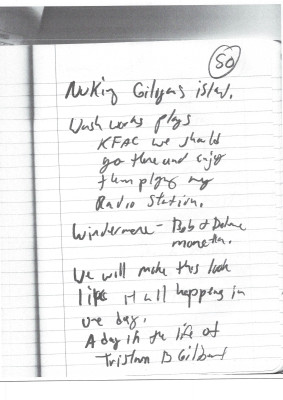 50
Nuking Gilgans islan.
Wash works plays
KFAC we should
go there and enjoy
them plying my
Radio Station.
Windermere - Bob &
We will make this look
like it all happens in
one day.
A day in the life of
Tristram D Gilbert